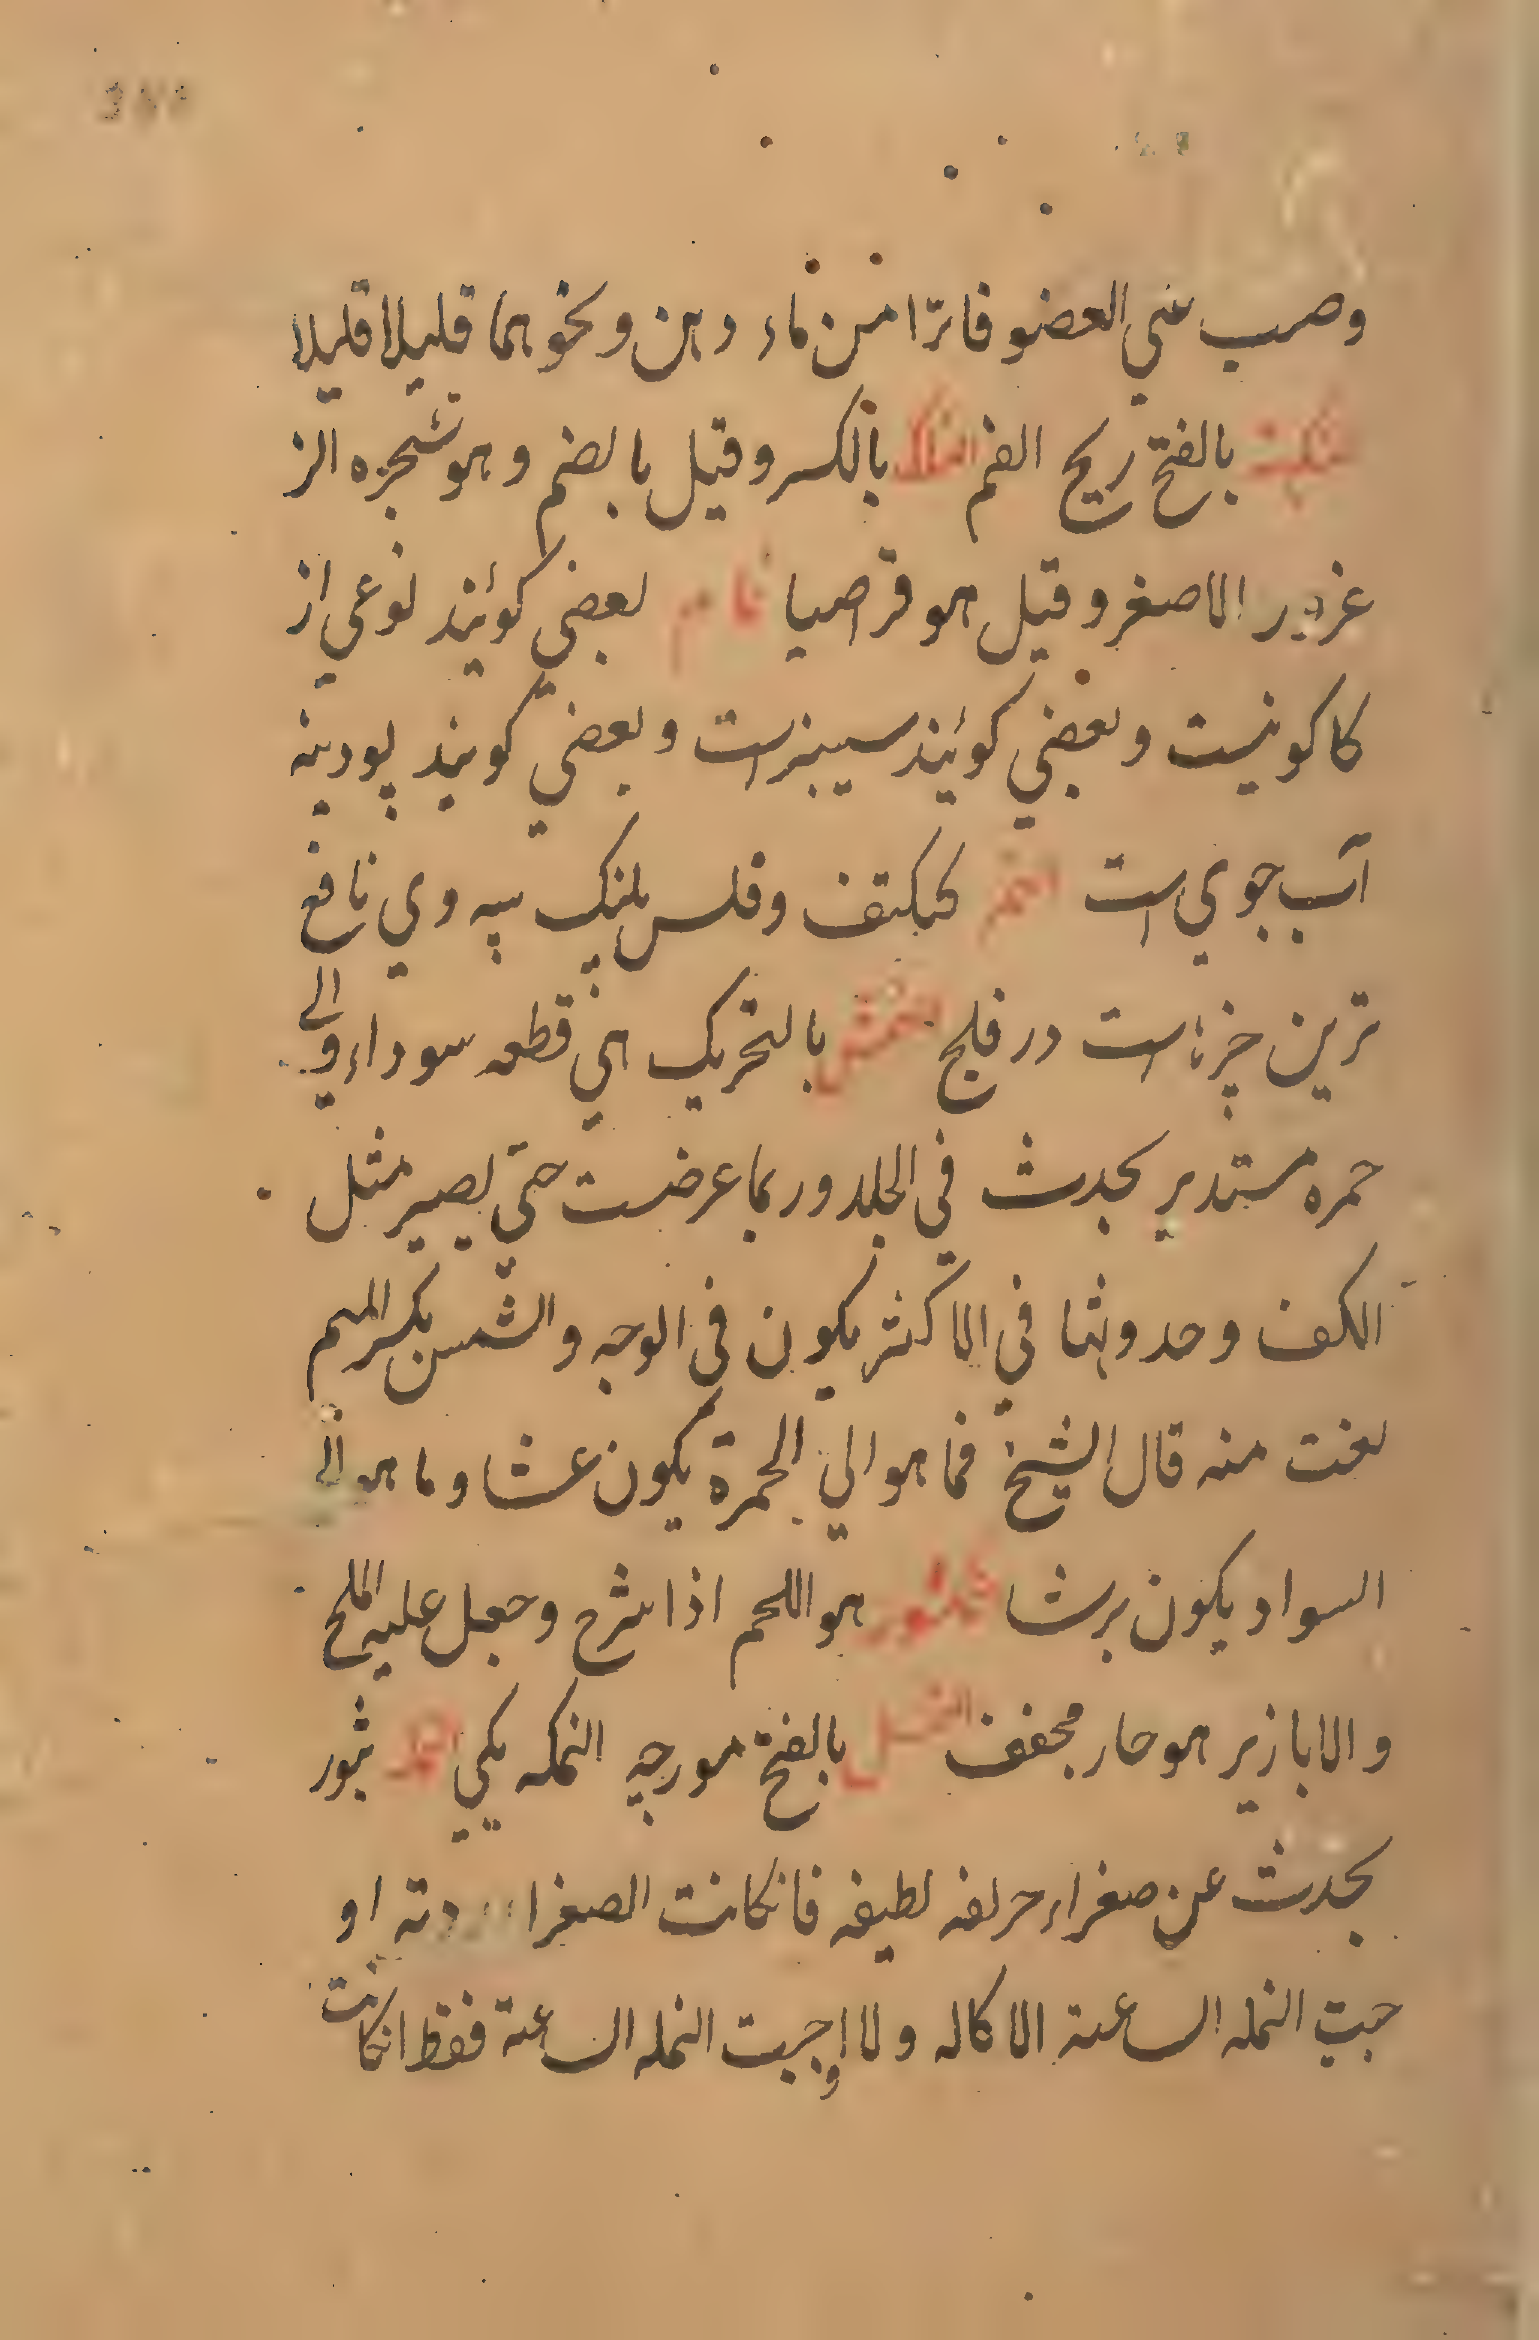 وصب علي العضو فاترّا من ماء ودهن ونحوهما قليلا قليلا
نكهة بالفتح ريح الفم النلك بالكسر وقيل بالضم وهو شجره الز
عرور الاصغر وقيل هو قراصيا نمام بعضي كوئيند نوعي از
كاكونيست وبعضي كوئيند سيسنبرست وبعضي كويند پودينه
آب جوي است النمر ككتف وفلس پلنك پيه وي نافع
ترين چيزهاست در فلج النمش بالتحريك هي قطعه سوداء والي
حمره مستدير يحدث في الجلد وربما عرضت حتي يصير مثل
الكف وحدوثها في الاكثر يكون في الوجه والنمش بكسر الميم
لغت منه قال الشيخ فما هو الي الحمرة يكون نمشا وما هو الي
السواد يكون برشا نمكسود هو اللحم اذا شرح وجعل عليه الملح
والابازير هو حار مجفف النمل بالفتح مورچه النمله يكي النمله بثور
يحدث عن صفراء حريفه لطيفه فانكانت الصفراء ردته او
جبت النمله الساعية الاكاله والا اوجبت النمله الساعية فقط انكانت